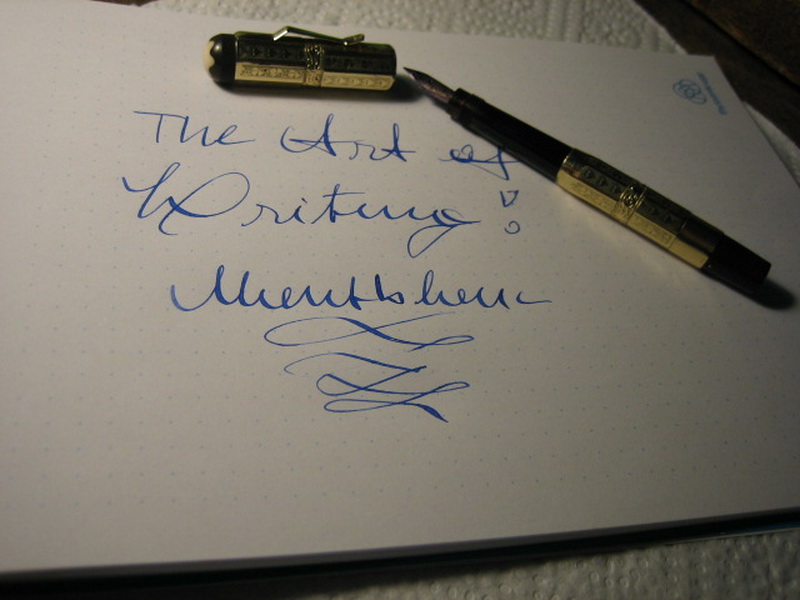 The Art of
Writing!